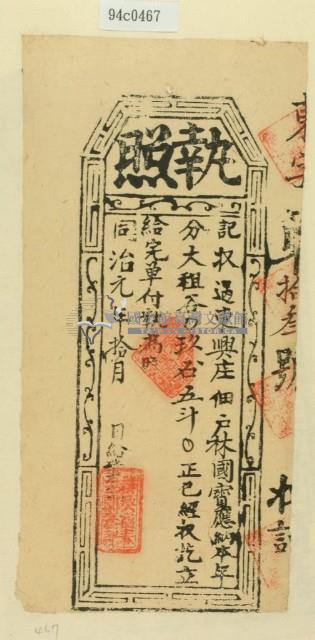 94c0467
執照
記收過東興庄佃戶林國寶應納本年
分大租谷玖石五斗〇正已經收訖立
給完單付執為炤
同治元年拾月 日給
東字第拾叁號
國史館臺灣文獻館
467